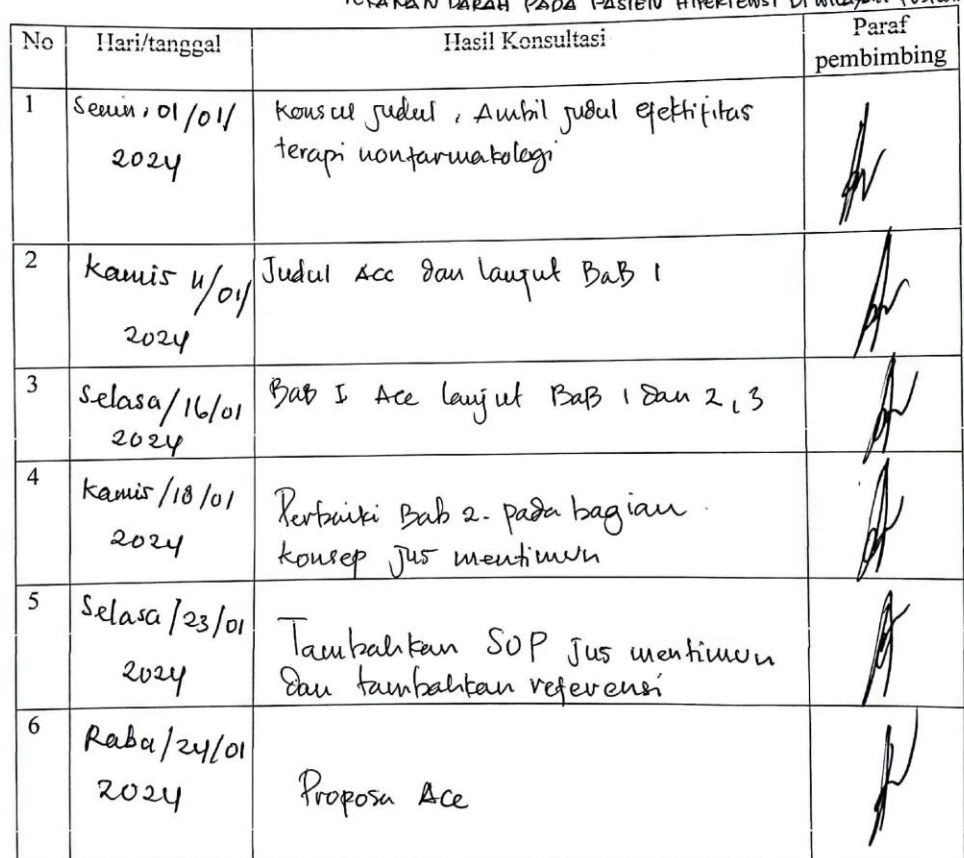 TEKANAN DARAH PADA PASIEN HIPERTENSI DI
No Hari/tanggal Hasil Konsultasi Paraf pembimbing
1 Senin, 01/01/ 2024
Konsul Judul, Ambil judul efektifitas
terapi nonfarmakologi
2 Kamis 11/01/ 2024
Judul Acc dan lanjut BaB 1
3 Selasa/16/01 2024
Bab I Acc lanjut BaB 1 dan 2,3
4 Kamis/18/01 2024
Perbaiki Bab 2. pada bagian
konsep Jus mentimun
5 Selasa/23/01 2024
Tambahkan SOP Jus mentimun
dan tambahkan referensi
6 Rabu/24/01 2024
Proposa Acc